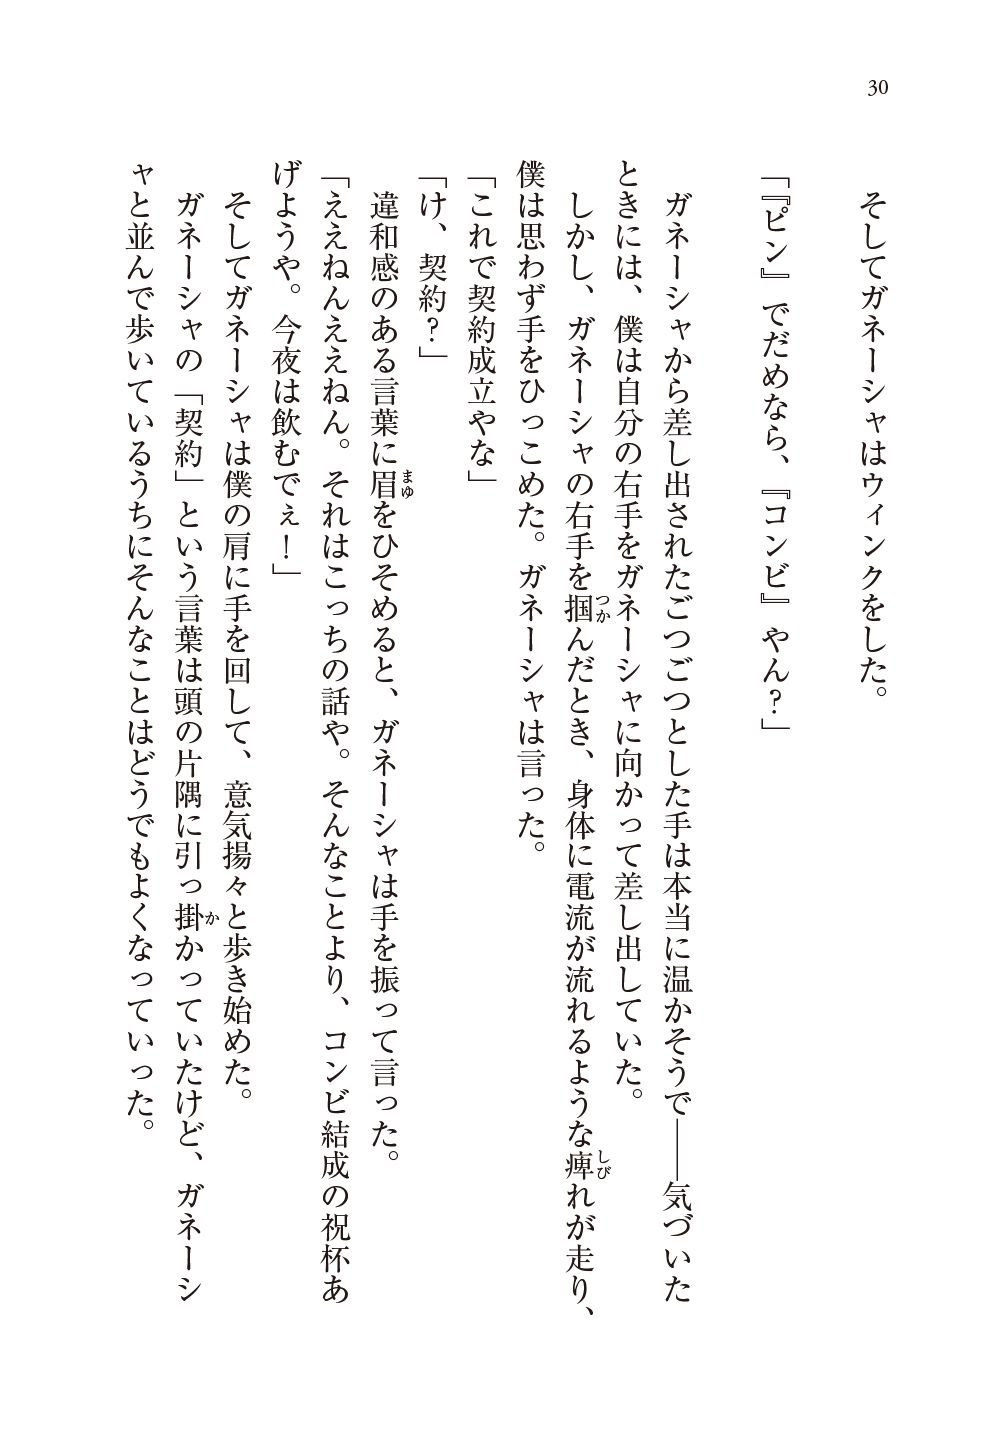 30
そしてガネーシャはウィンクをした。
「『ピン』でだめなら、『コンビ』やん？」
ガネーシャから差し出されたごつごつとした手は本当に温かそうで――気づいた
ときには、僕は自分の右手をガネーシャに向かって差し出していた。
しかし、ガネーシャの右手を掴んだとき、身体に電流が流れるような痺れが走り、
僕は思わず手をひっこめた。ガネーシャは言った。
「これで契約成立やな」
「け、契約？」
違和感のある言葉に眉をひそめると、ガネーシャは手を振って言った。
「ええねんええねん。それはこっちの話や。そんなことより、コンビ結成の祝杯あ
げようや。今夜は飲むでぇ！」
そしてガネーシャは僕の肩に手を回して、意気揚々と歩き始めた。
ガネーシャの「契約」という言葉は頭の片隅に引っ掛かっていたけど、ガネーシ
ャと並んで歩いているうちにそんなことはどうでもよくなっていった。